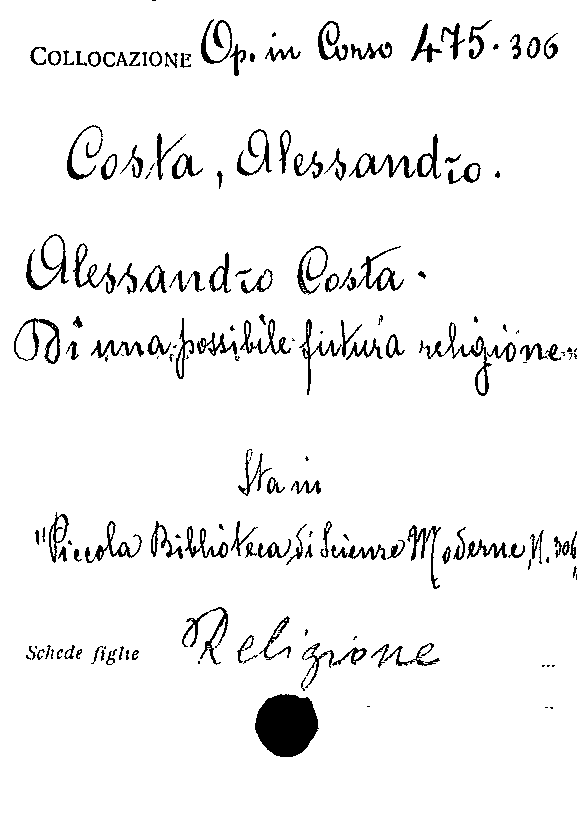 COLLOCAZIONE Op. in Corso 475. 306
Costa, Alessandro.
Alessandro Costa.
Di una possibile futura religione.
Sta in
"Piccola Biblioteca di Scienze Moderne, N. 306"
Schede figlie Religione